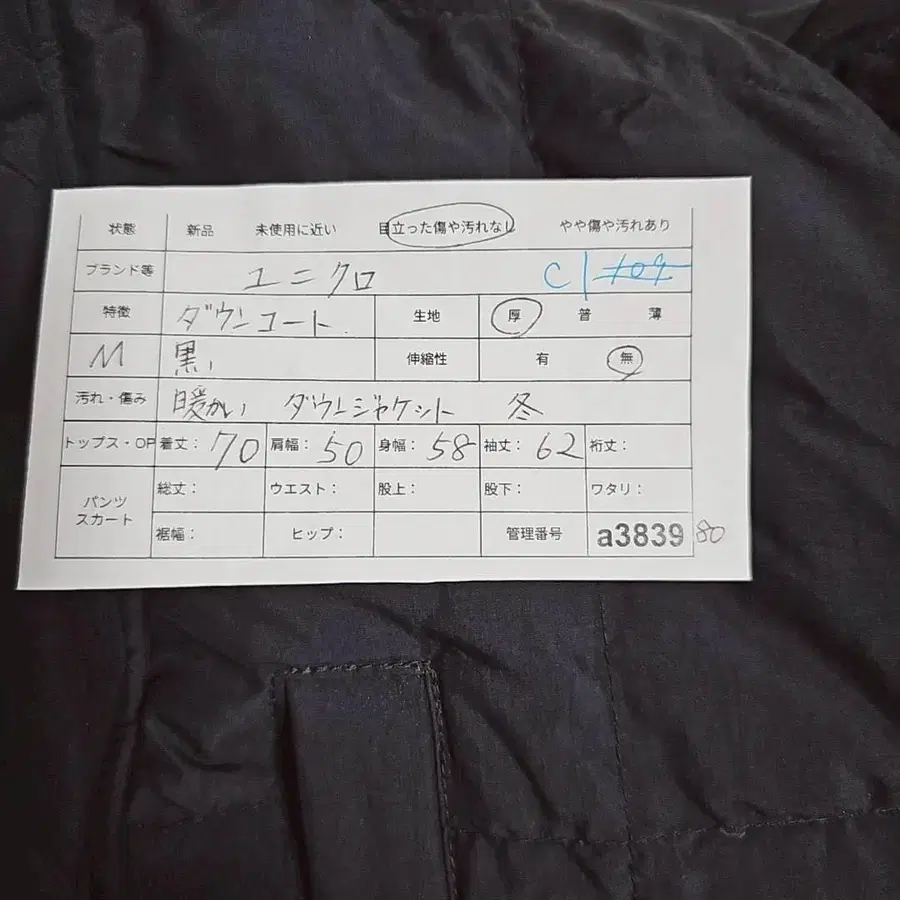 状態 新品 未使用に近い 目立った傷や汚れなし やや傷や汚れあり
ブランド等 ユニクロ C1
特徴 ダウンコート 生地 厚 普 薄
M 黒 伸縮性 有 無
汚れ・傷み 暖かい ダウンジャケット 冬
トップス・OP 着丈: 70 肩幅: 50 身幅: 58 袖丈: 62 裄丈:
パンツ スカート
総丈: ウエスト: 股上: 股下: ワタリ:
裾幅: ヒップ: 管理番号 a3839 80